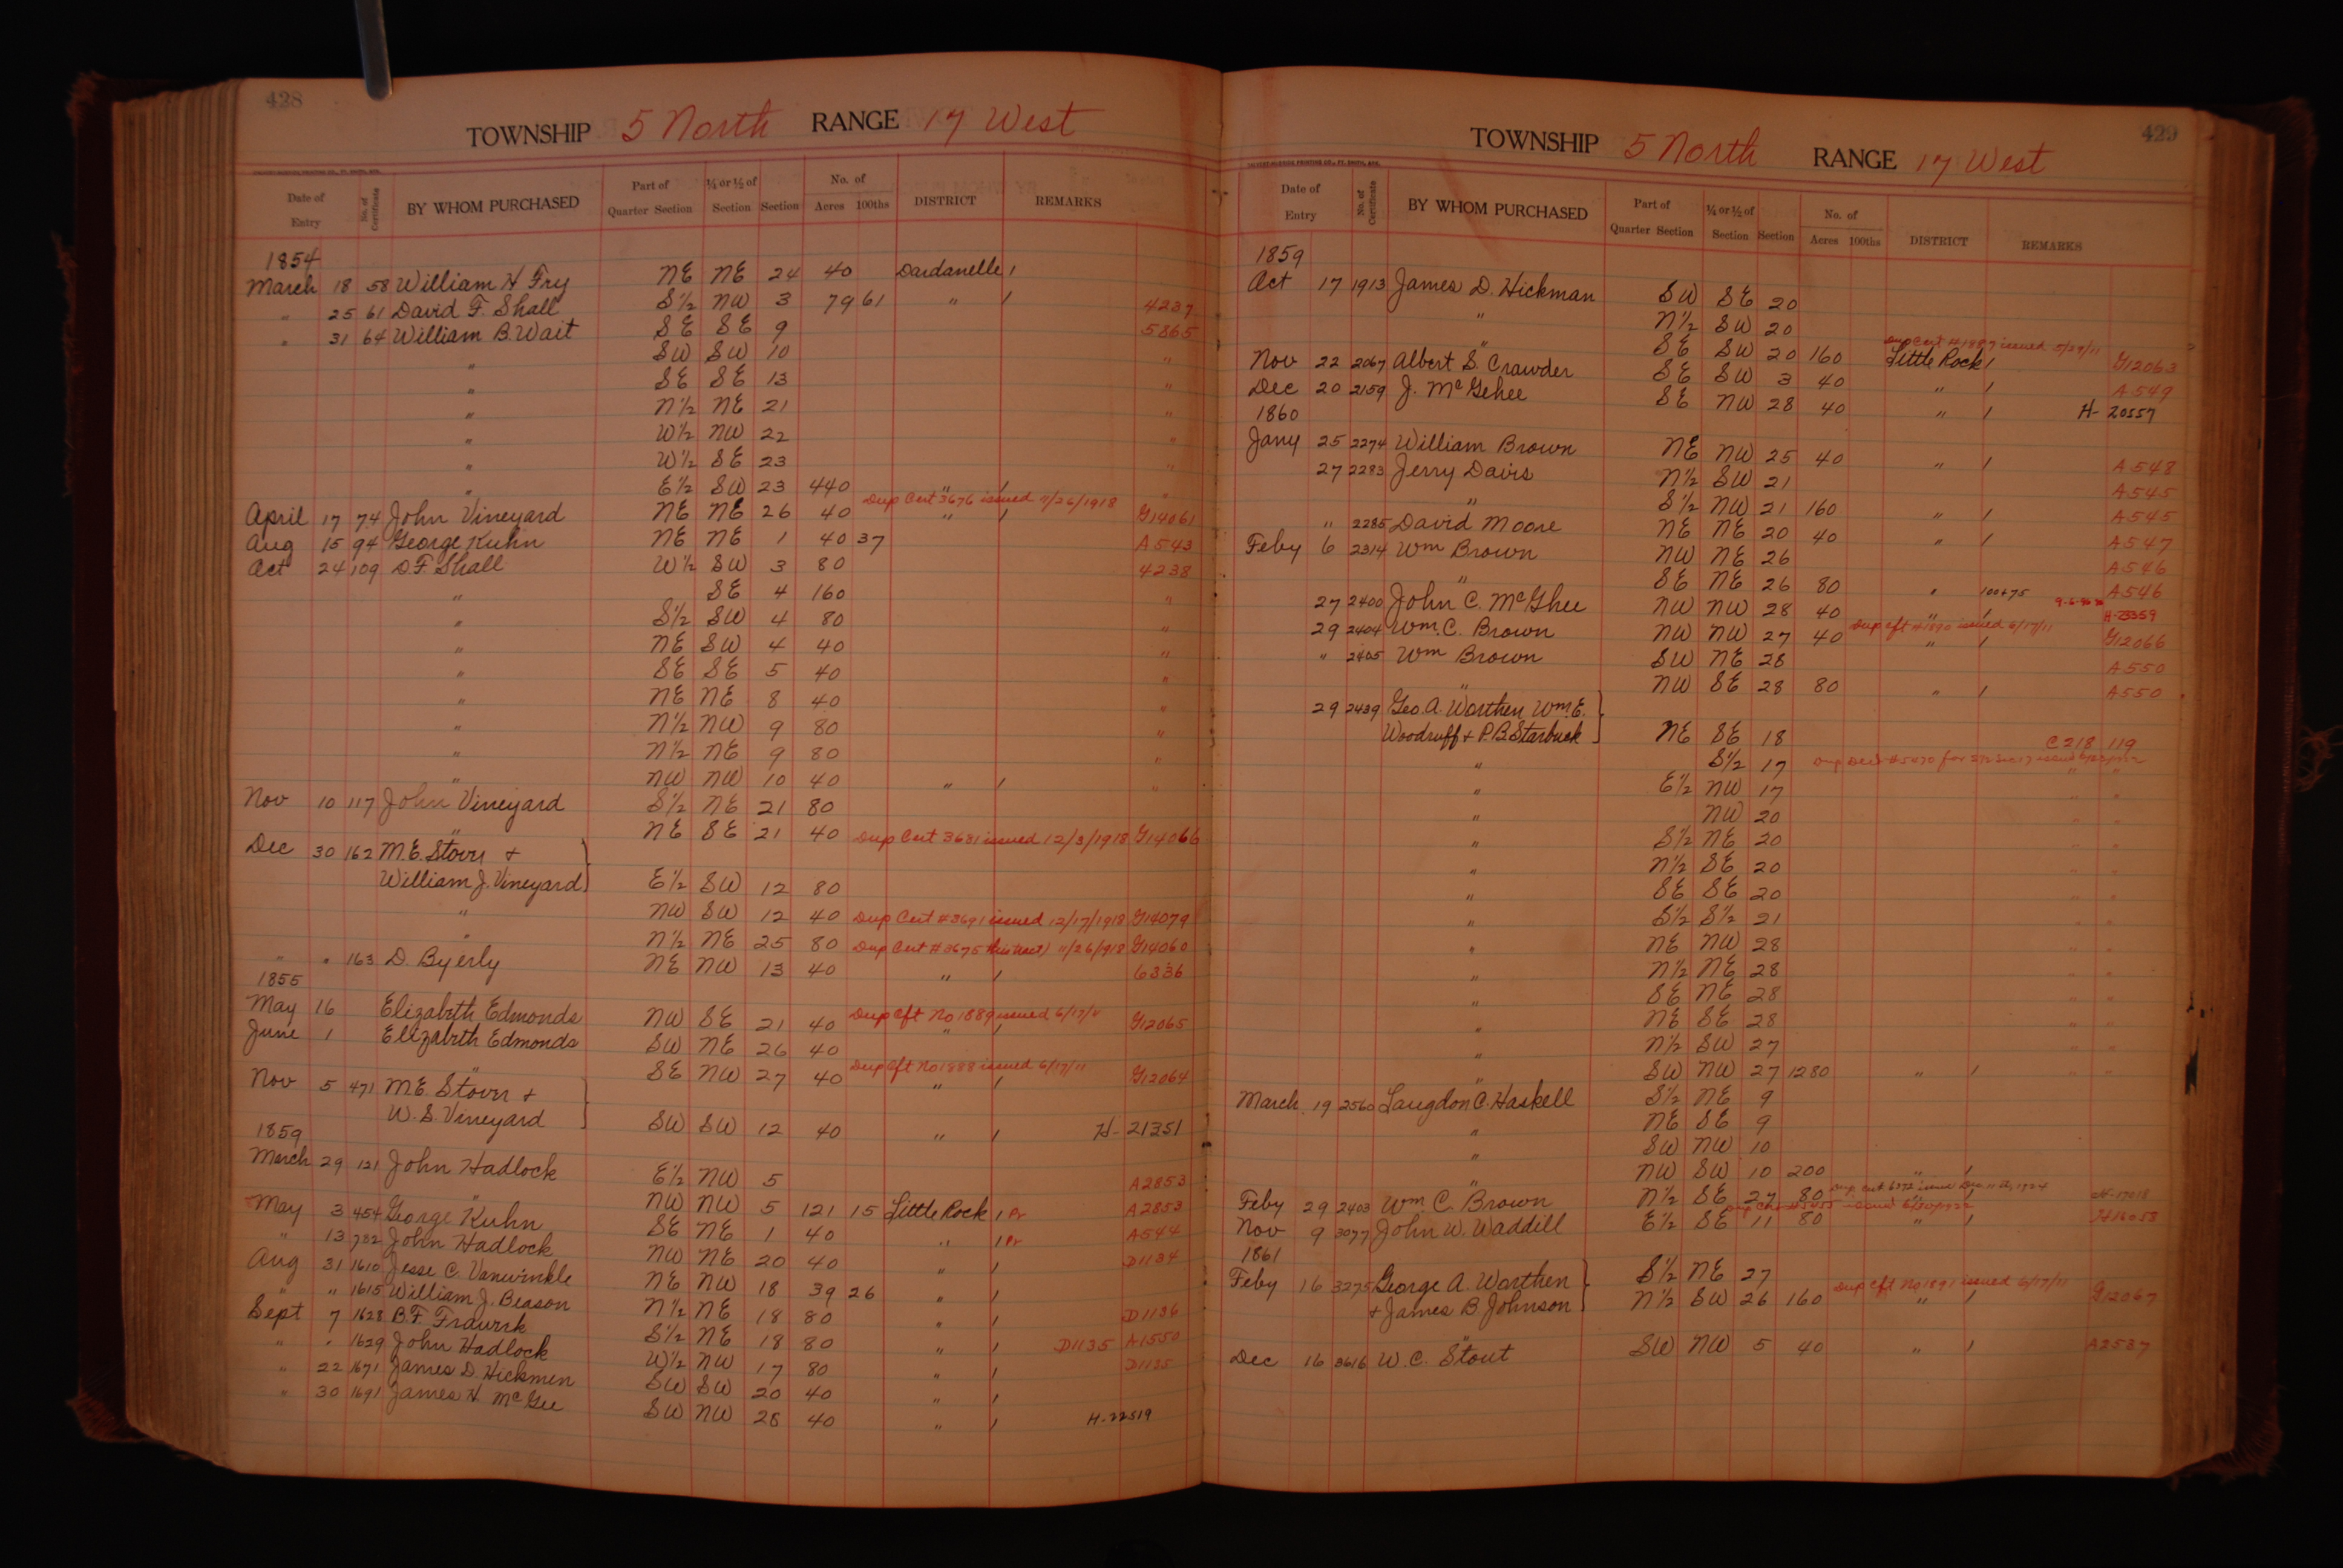 428
TOWNSHIP 5 North RANGE 17 West
Date of Entry No. of Certificate BY WHOM PURCHASED Part of Quarter Section ¼ or ½ of Section Section No. of Acres 100ths DISTRICT REMARKS
1854
March 18 58 William H Fry NE NE 24 40 Dardanelle /
" 25 61 David F. Shall S½ NW 3 79 61 " / 4237
" 31 64 William B. Wait SE SE 9 5865
" SW SW 10 "
" SE SE 13 "
" N½ NE 21 "
" W½ NW 22 "
" W½ SE 23 "
" E½ SW 23 440 " / "
Dup Cert 3676 issued 11/26/1918
April 17 74 John Vineyard NE NE 26 40 " / G14061
Aug 15 94 George Kuhn NE NE 1 40 37 A543
Oct 24 109 D.F. Shall W½ SW 3 80 4238
" SE 4 160 "
" S½ SW 4 80 "
" NE SW 4 40 "
" SE SE 5 40 "
" NE NE 8 40 "
" N½ NW 9 80 "
" N½ NE 9 80 "
" NW NW 10 40 " / "
Nov 10 117 John Vineyard S½ NE 21 80
" NE SE 21 40 Dup Cert 3681 issued 12/3/1918 G14066
Dec 30 162 M.E. Stovr +
William J. Vineyard E½ SW 12 80
" NW SW 12 40 Dup Cert #3691 issued 12/17/1918 G14079
" N½ NE 25 80 Dup Cert #3675 11/26/1918 G14060
" " 163 D. Byerly NE NW 13 40 " / 6336
1855
Dup Cft No 1889 issued 6/17/11
May 16 Elizabeth Edmonds NW SE 21 40 " / G12065
June 1 Elizabeth Edmonds SW NE 26 40
Dup Cft No 1888 issued 6/17/11
" SE NW 27 40 " / G12064
Nov 5 471 M.E. Stovr +
W. S. Vineyard SW SW 12 40 " / H-21351
1859
March 29 121 John Hadlock E½ NW 5 A2853
" NW NW 5 121 15 Little Rock / Pr A2853
May 3 454 George Kuhn SE NE 1 40 " / Pr A544
" 13 782 John Hadlock NW NE 20 40 " / D1134
Aug 31 1610 Jesse C. Vanwinkle NE NW 18 39 26 " /
" " 1615 William J. Beason N½ NE 18 80 " / D1136
Sept 7 1628 B.F. S½ NE 18 80 " / D1135 A1550
" " 1629 John Hadlock W½ NW 17 80 " / D1135
" 22 1671 James D. Hickmen SW SW 20 40 " /
" 30 1691 James H. McGee SW NW 28 40 " / H-22519
429
TOWNSHIP 5 North RANGE 17 West
Date of Entry No. of Certificate BY WHOM PURCHASED Part of Quarter Section ¼ or ½ of Section Section No. of Acres 100ths DISTRICT REMARKS
1859
Oct 17 1913 James D. Hickman SW SE 20
" N½ SW 20
Dup Cert #1887 issued 5/29/11
" SE SW 20 160 Little Rock / G12063
Nov 22 2067 Albert S. Crawder SE SW 3 40 " / A549
Dec 20 2159 J. McGehee SE NW 28 40 " / H-20557
1860
Jany 25 2274 William Brown NE NW 25 40 " / A548
27 2283 Jerry Davis N½ SW 21 A545
" S½ NW 21 160 " / A545
" 2285 David Moore NE NE 20 40 " / A547
Feby 6 2314 Wm Brown NW NE 26 A546
" SE NE 26 80 " 100+75 A546
27 2400 John C. McGhee NW NW 28 40 " / H-23359
Dup Cft #1890 issued 6/17/11
29 2404 Wm. C. Brown NW NW 27 40 " / G12066
" 2405 Wm Brown SW NE 28 A550
" NW SE 28 80 " / A550
29 2439 Geo. A. Worthen Wm. E.
Woodruff + P.B. Starbuck NE SE 18 C218 119
" S½ 17 " "
" E½ NW 17 " "
" NW 20 " "
" S½ NE 20 " "
" N½ SE 20 " "
" SE SE 20 " "
" S½ S½ 21 " "
" NE NW 28 " "
" N½ NE 28 " "
" SE NE 28 " "
" NE SE 28 " "
" N½ SW 27 " "
" SW NW 27 1280 " / " "
March 19 2560 Langdon C. Haskell S½ NE 9
" NE SE 9
" SW NW 10
" NW SW 10 200 " /
Feby 29 2403 Wm. C. Brown N½ SE 27 80 " / H-17018
Nov 9 3077 John W. Waddill E½ SE 11 80 " / H16053
1861
Feby 16 3275 George A. Worthen S½ NE 27
Dup Cft No 1891 issued 6/17/11
+ James B. Johnson N½ SW 26 160 " / G12067
Dec 16 3616 W. C. Stout SW NW 5 40 " / A2537